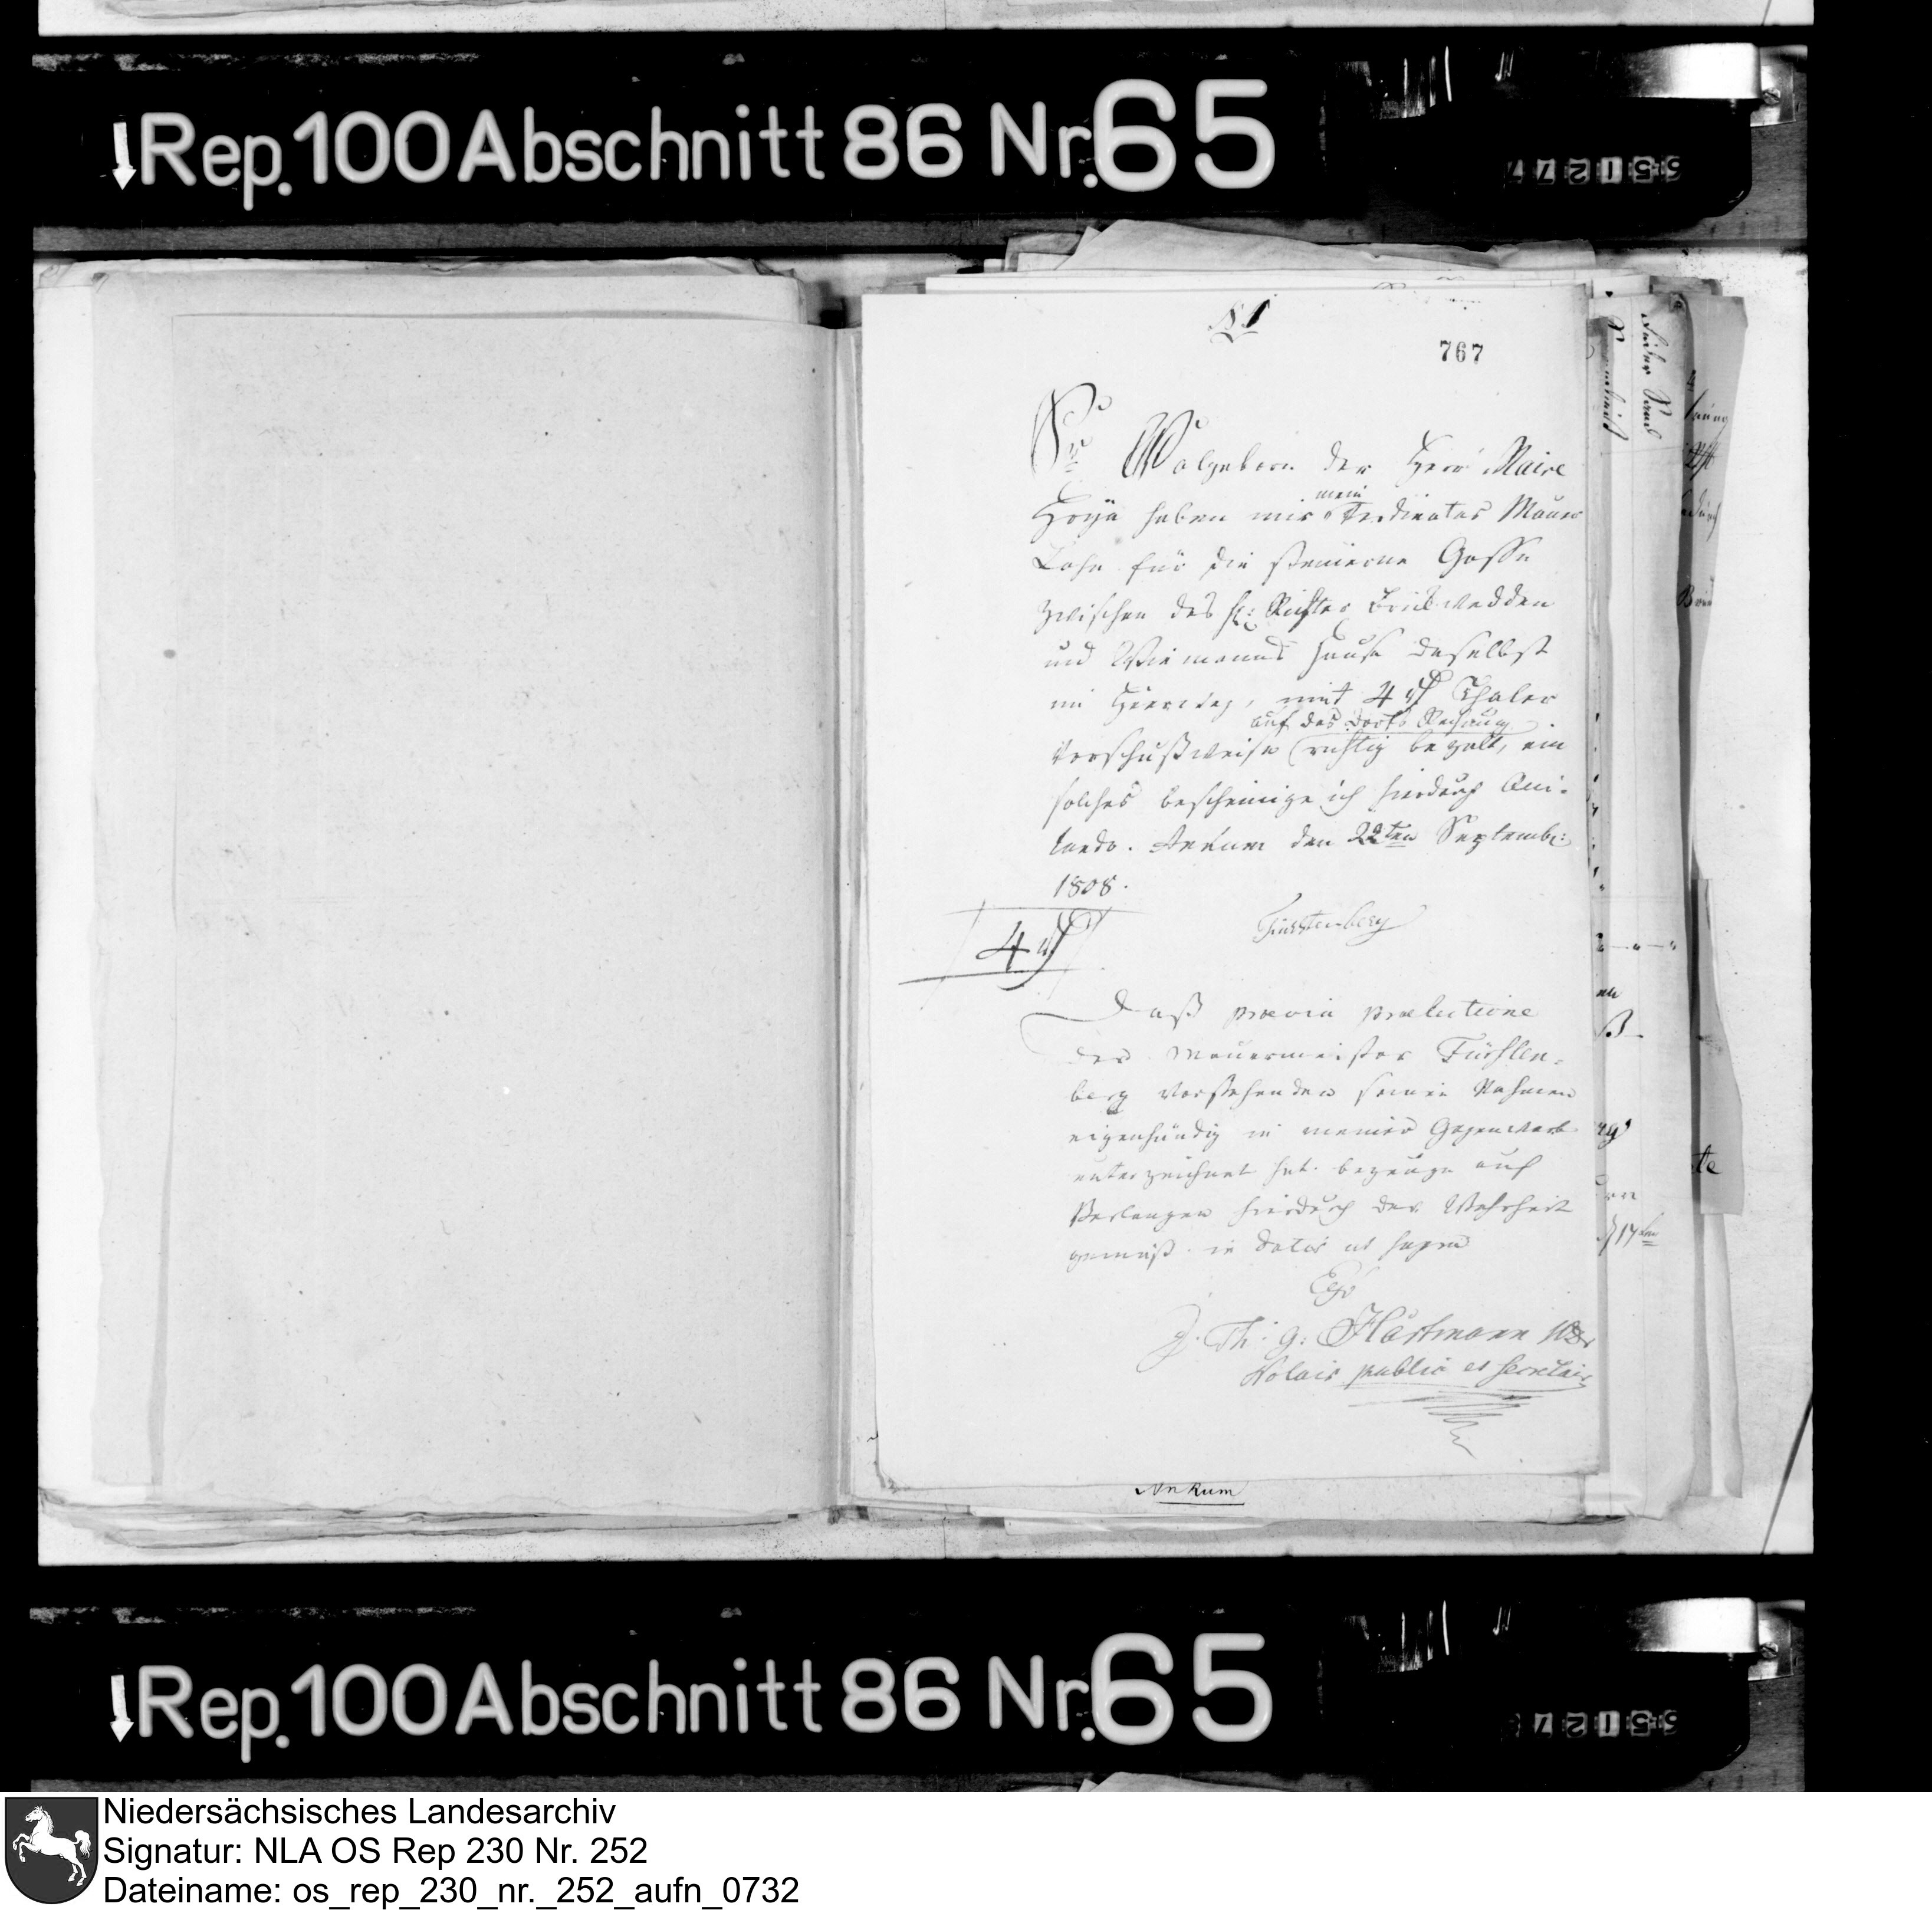 Rep. 100 Abschnitt 86 Nr. 65
N 1
767
Sr Wolgeborn der Herr Maire
Hoya haben mir mein verdientes Mauer
Lohn für die steinerne Gosse
zwischen des H: Richter Brickwedden
und Wiemanns Hause daselbst
im Hierweg, mit 4 rt Thaler
auf des Dorfs Rechnung
Vorschußweise richtig bezalt, ein
solches bescheinige ich hierdurch Qui-
tando. Ankum den 22ten Septemb:
1808.
Fürstenberg
4 rt
Daß praevia praelectione
der Mauermeister Fürsten-
berg vorstehenden seinen Nahmen
eigenhändig in meiner Gegenwart
unterzeichnet hat. bezeuge auf
Verlangen hierdurch der Wahrheit
gemäß. in dato ut supra
Ego
J. Th. G: Hartmann
Notair public et Secretair
Ankum
Rep. 100 Abschnitt 86 Nr. 65
Niedersächsisches Landesarchiv
Signatur: NLA OS Rep 230 Nr. 252
Dateiname: os_rep_230_nr._252_aufn_0732